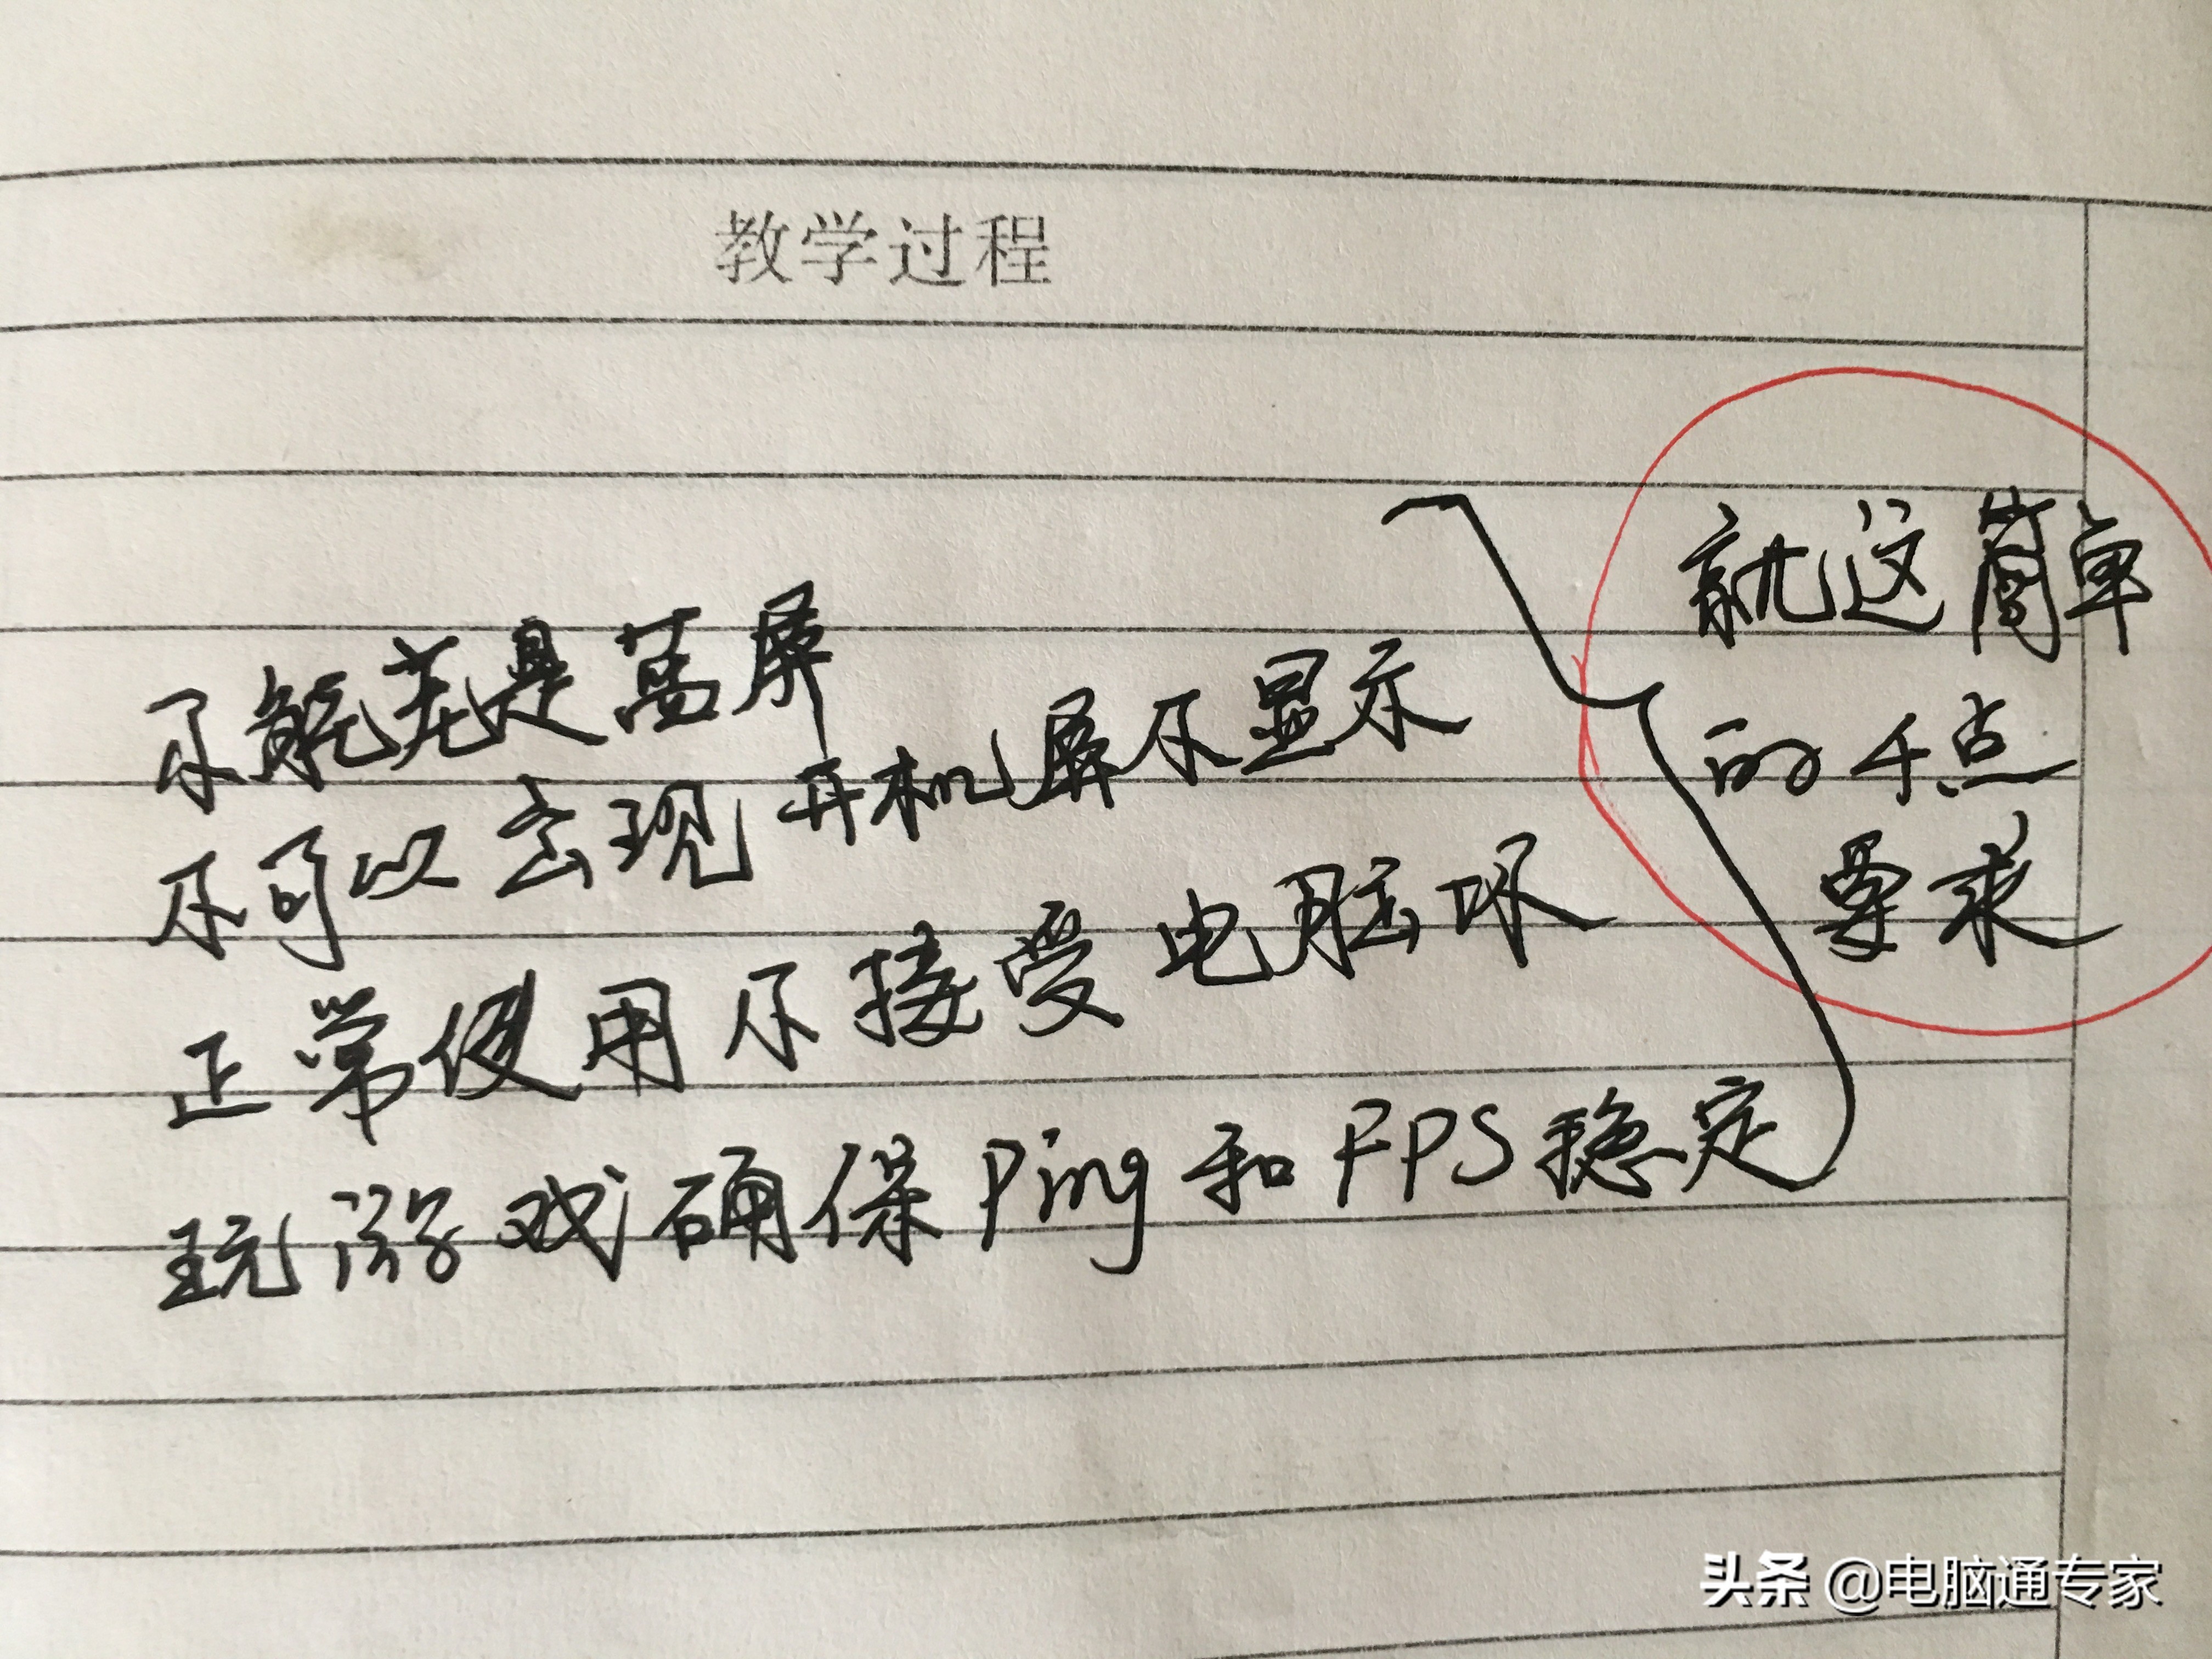 教学过程
不能老是蓝屏
不可以出现开机屏不显示
正常使用不接受电脑坏
玩游戏确保Ping和FPS稳定
就这简单
的4点
要求
头条 @电脑通专家